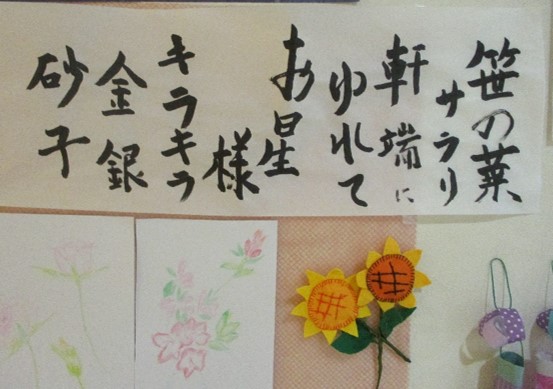 笹の葉
サラリ
軒端に
ゆれて
お星
様
キラキラ
金銀
砂子